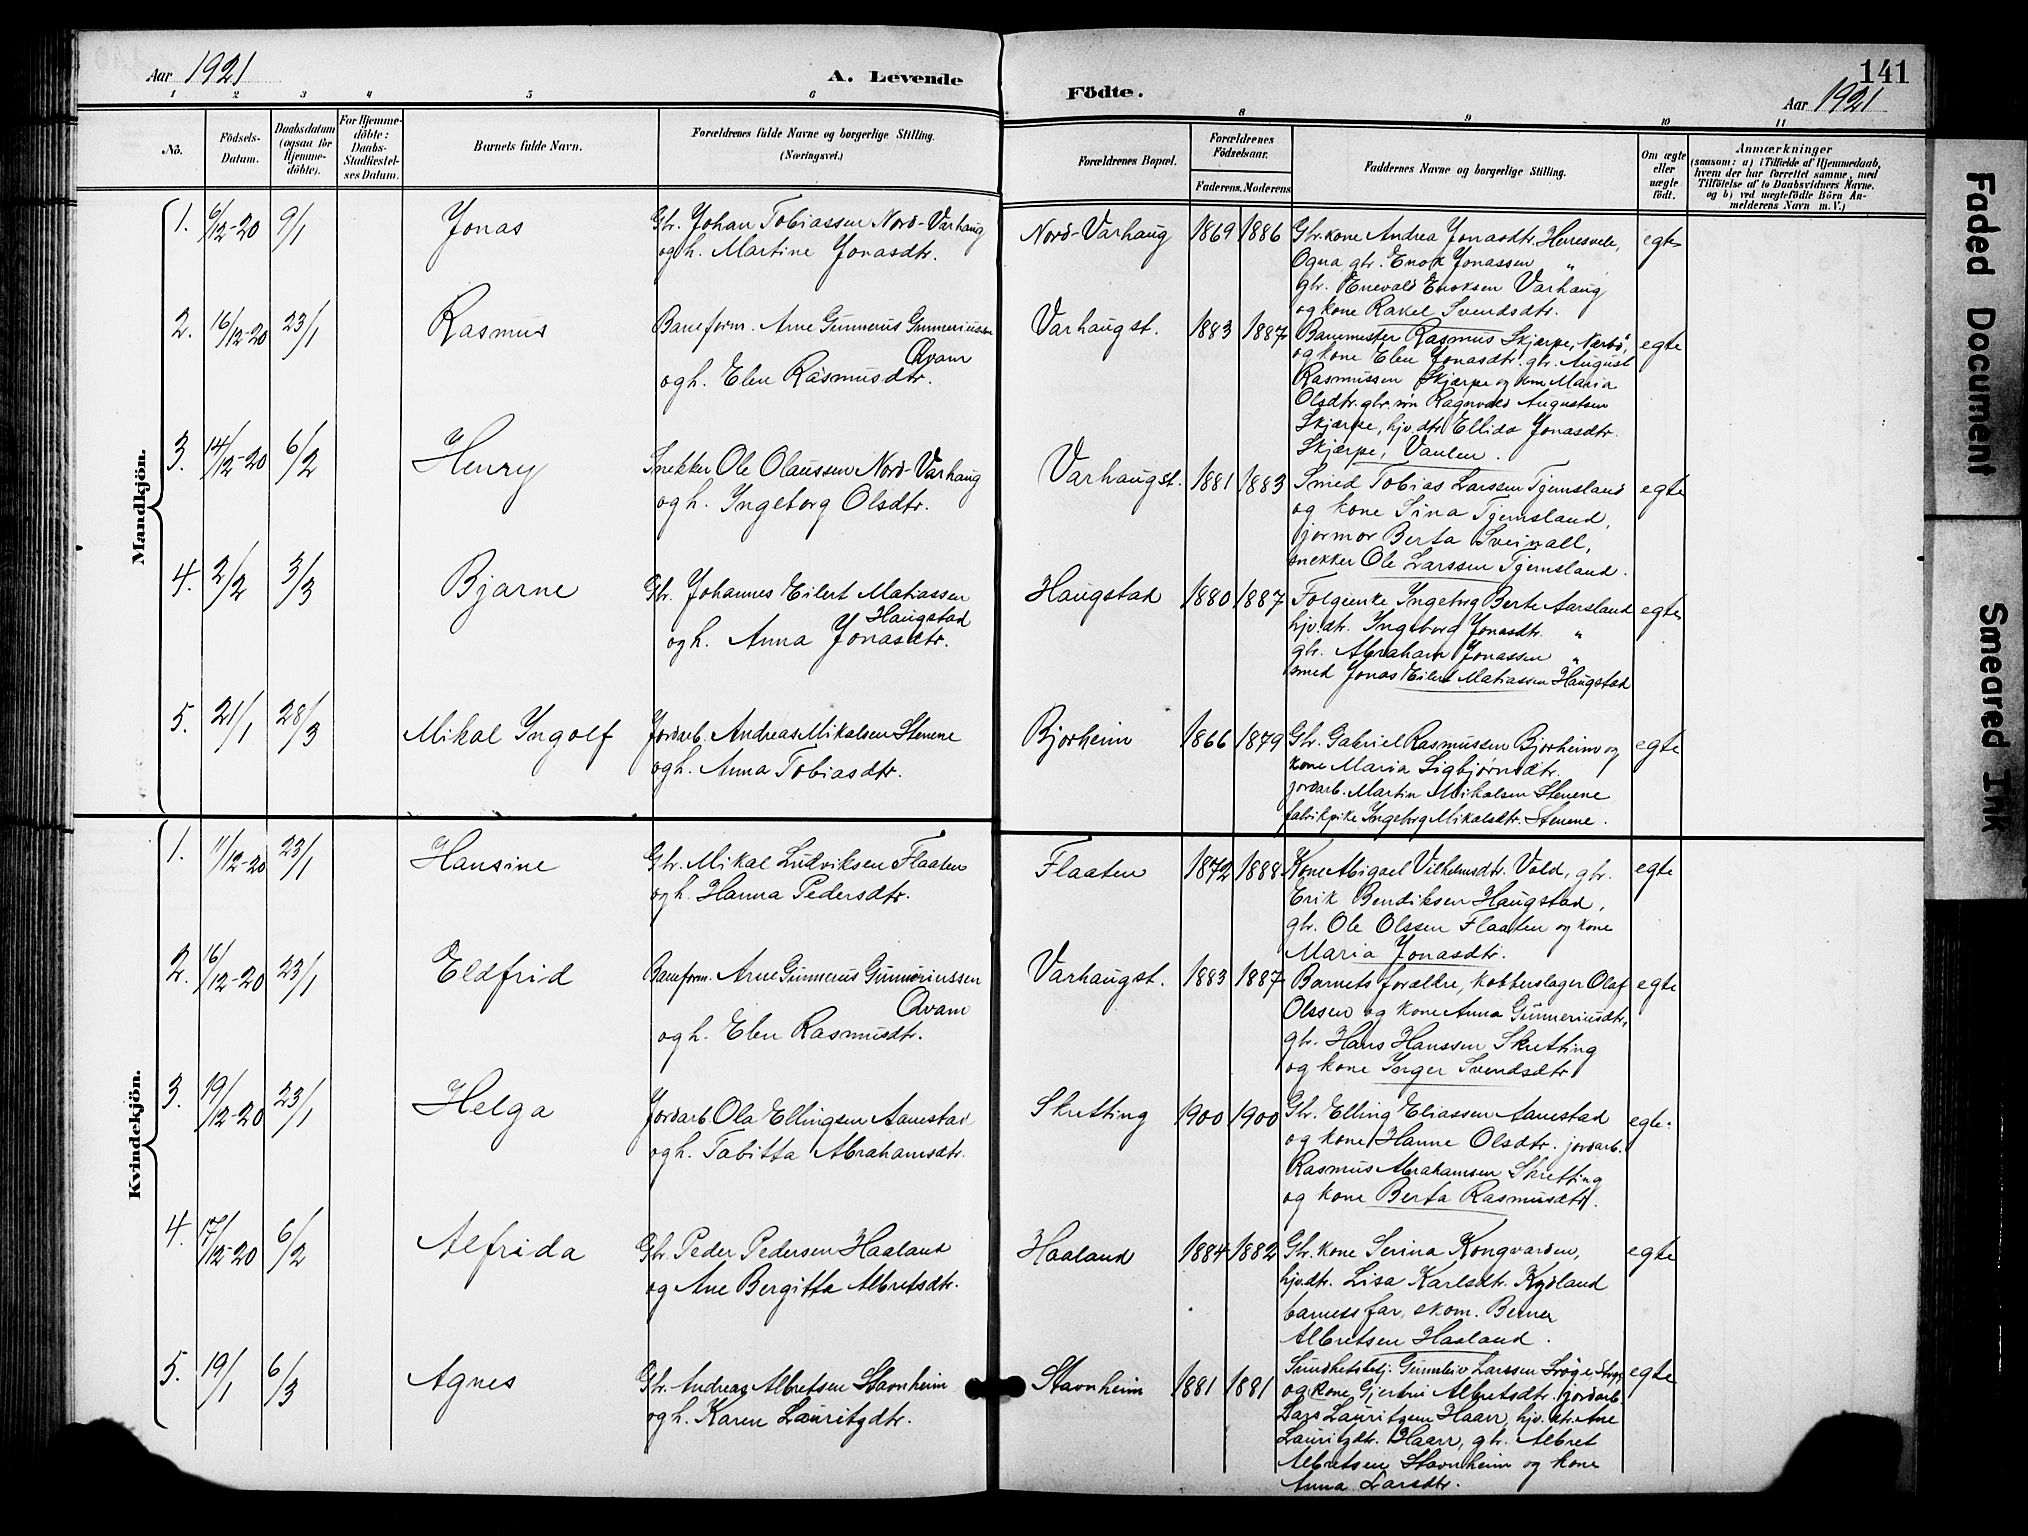 Aar 1921
A. Levende
Födte.
141
Aar 1921
1 2 3 4 5 6 8 9 10 11
Nö.
Födsels-Datum.
Daabsdatum (ogsaa för Hjemme-döbte).
For Hjemme-döbte: Daabs-Stadfæstel-ses Datum.
Barnets fulde Navn.
Forældrenes fulde Navne og borgerlige Stilling.
(Næringsvei.)
Forældrenes Bopæl.
Forældrenes Födselsaar.
Faderens. Moderens.
Faddernes Navne og borgerlige Stilling.
Om ægte eller uægte födt.
Anmærkninger
(saasom: a) i Tilfælde af Hjemmedaab, hvem der har forrettet samme, med Tilföielse af to Daabsvidners Navne, og b) ved uægtefödte Börn An-melderens Navn m. V.)
Mandkjön.
1. 6/12-20 9/1 Jonas
Gbr. Johan Tobiassen Nord-Varhaug
og h. Martine Jonasdtr.
Nord-Varhaug 1869 1886
Gbr.kone Andrea Jonasdtr. Herresvele,
Ogna, gbr. Enok Jonassen "
gbr. Enevald Enoksen Varhaug
og kone Rakel Svendsdtr.
egte
2. 16/12-20 23/1 Rasmus
Baneform. Arne Gunnerus Gunneriussen
Qvam
og h. Elen Rasmusdtr.
Varhaugst. 1883 1887
Banemester Rasmus Skjærpe, Nærbö,
og kone Elen Jonasdtr. gbr. August
Rasmussen Skjærpe og kone Maria
Olsdtr. gbr. søn Ragnvald Augustsen
Skjærpe, hjv. dtr. Ellida Jonasdtr.
Skjærpe, Vaulen.
egte
3. 14/12-20 6/2 Henry
Snekker Ole Olaussen Nord-Varhaug
og h. Ingeborg Olsdtr.
Varhaugst. 1881 1883
Smed Tobias Larssen Tjemsland
og kone Sina Tjemsland,
jormor Berta Sveinall,
snekker Ole Larssen Tjemsland.
egte
4. 2/2 3/3 Bjarne
Gbr. Johannes Eilert Matiassen
Haugstad
og h. Anna Jonasdtr.
Haugstad 1880 1887
Folgeenke Ingeborg Berte Aarsland
hjv.dtr. Ingeborg Jonasdtr. "
gbr. Abraham Jonassen "
smed Jonas Eilert Matiassen Haugstad
egte
5. 21/1 28/3 Mikal Ingolf
Jordarb. Andreas Mikalsen Stenene
og h. Anna Tobiasdtr.
Bjorheim 1866 1879
Gbr. Gabriel Rasmussen Bjorheim og
kone Maria Sigbjørnsdtr.
jordarb. Martin Mikalsen Stenene
fabrikpike Ingeborg Mikalsdtr. Stenene.
egte
Kvindekjön.
1. 11/12-20 23/1 Hansine
Gbr. Mikal Ludviksen Flaaten
og h. Hanna Pedersdtr.
Flaaten 1872 1888
Kone Abigael Vilhelmsdtr. Vold, gbr.
Erik Bendiksen Haugstad,
gbr. Ole Olssen Flaaten og kone
Maria Jonasdtr.
egte
2. 16/12-20 23/1 Eldfrid
Baneform. Arne Gunnerus Gunneriussen
Qvam
og h. Elen Rasmusdtr.
Varhaugst. 1883 1887
Barnets forældre, kobberslager Olaf
Olssen og kone Anna Gunneriusdtr,
gbr. Hans Hanssen Skretting
og kone Inger Svendsdtr
egte
3. 19/12-20 23/1 Helga
Jordarb. Ola Ellingsen Aanestad
og h. Tabitta Abrahamsdtr.
Skretting 1900 1900
Gbr. Elling Eliassen Aanestad
og kone Hanne Olsdtr. jordarb.
Rasmus Abrahamsen Skretting
og kone Berta Rasmusdtr.
egte.
4. 17/12-20 6/2 Alfrida
Gbr. Peder Pedersen Haaland
og Ane Bergitta Albretsdtr.
Haaland 1884 1882
Gbr. kone Serina Kongvarden,
hjv.dtr. Lisa Karlsdtr. Kydland
barnets far, skom. Berner
Albretsen Haaland.
egte
5. 19/1 6/3 Agnes
Gbr. Andreas Albretsen Stavnheim
og h. Karen Lauritzdtr.
Stavnheim 1881 1881
Sundhetsbetj. Gunnleiv Larssen
og kone Gjertrui Albretsdtr. jordarb.
Lars Lauritzen Haarr, hjv. dtr. Ane
Lauritzdtr. Haarr, gbr. Albret
Albretsen Stavnheim og kone
Anna Larsdtr.
egte
Faded Document
Smeared Ink